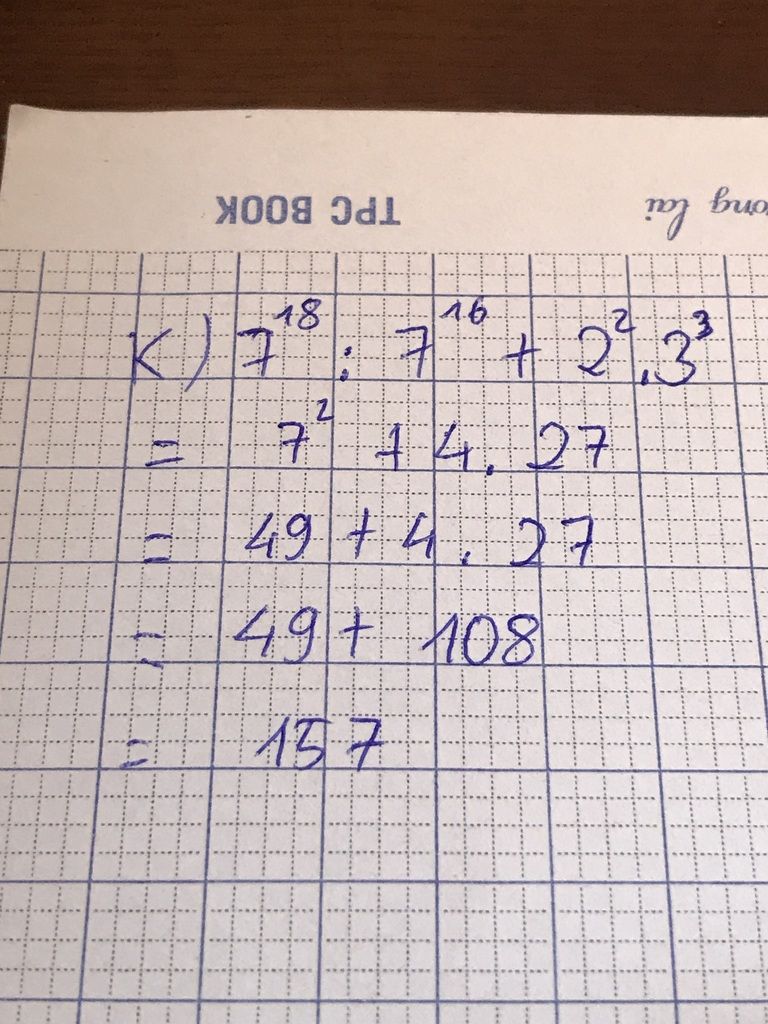 TPC BOOK
ong lai
K) 7¹⁸ : 7¹⁶ + 2² . 3³
= 7² + 4 . 27
= 49 + 4 . 27
= 49 + 108
= 157